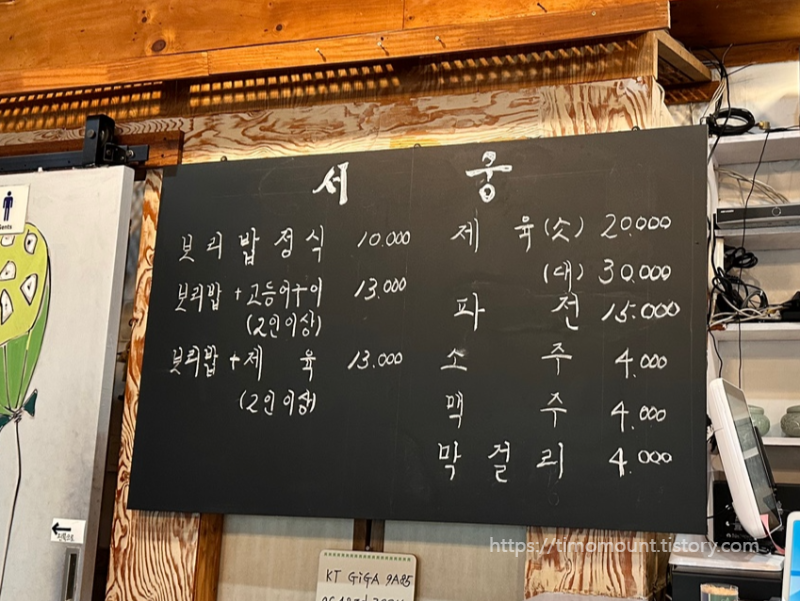 서 웅
보리밥정식 10.000
보리밥 + 고등어구이 13.000
(2인이상)
보리밥 + 제 육 13.000
(2인이상)
제 육 (소) 20.000
(대) 30.000
파 전 15.000
소 주 4.000
맥 주 4.000
막 걸 리 4.000
KT GiGA 9A85
https://timomount.tistory.com